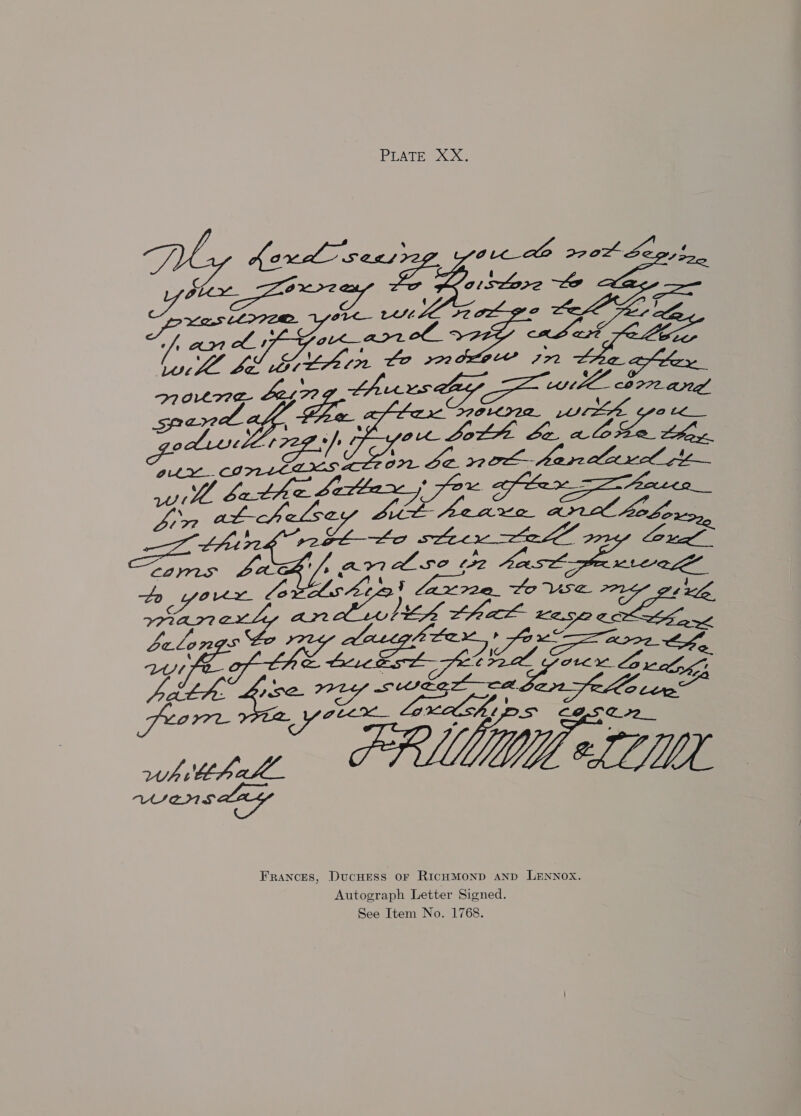 PLATE XX.
My Lord seeing you do not begine
your Jorney to Roiston to day I
presume you will not go tell fri day
and if you and my cosen fellow
will be within to morow in the after
noune being thursday I will com and
spend all the after noune with you
god willing; if you both be alone that
our conversation be not hendard it
will be the better; for after I have
bin at chelsey but heare and holborne
I think not to stur tell my Lord
coms back, and so in hast farwell
to your lordship! larne to use my girle
manerly and with that respect that
belongs to my daughter, for I am the
wife of the truest frend your lordship
hath. kise my sweet cosen fellowe
from me your lordships cosen
FRICHMOND & LENOX
whithall
wensday
FRANCES, DUCHESS OF RICHMOND AND LENNOX.
Autograph Letter Signed.
See Item No. 1768.